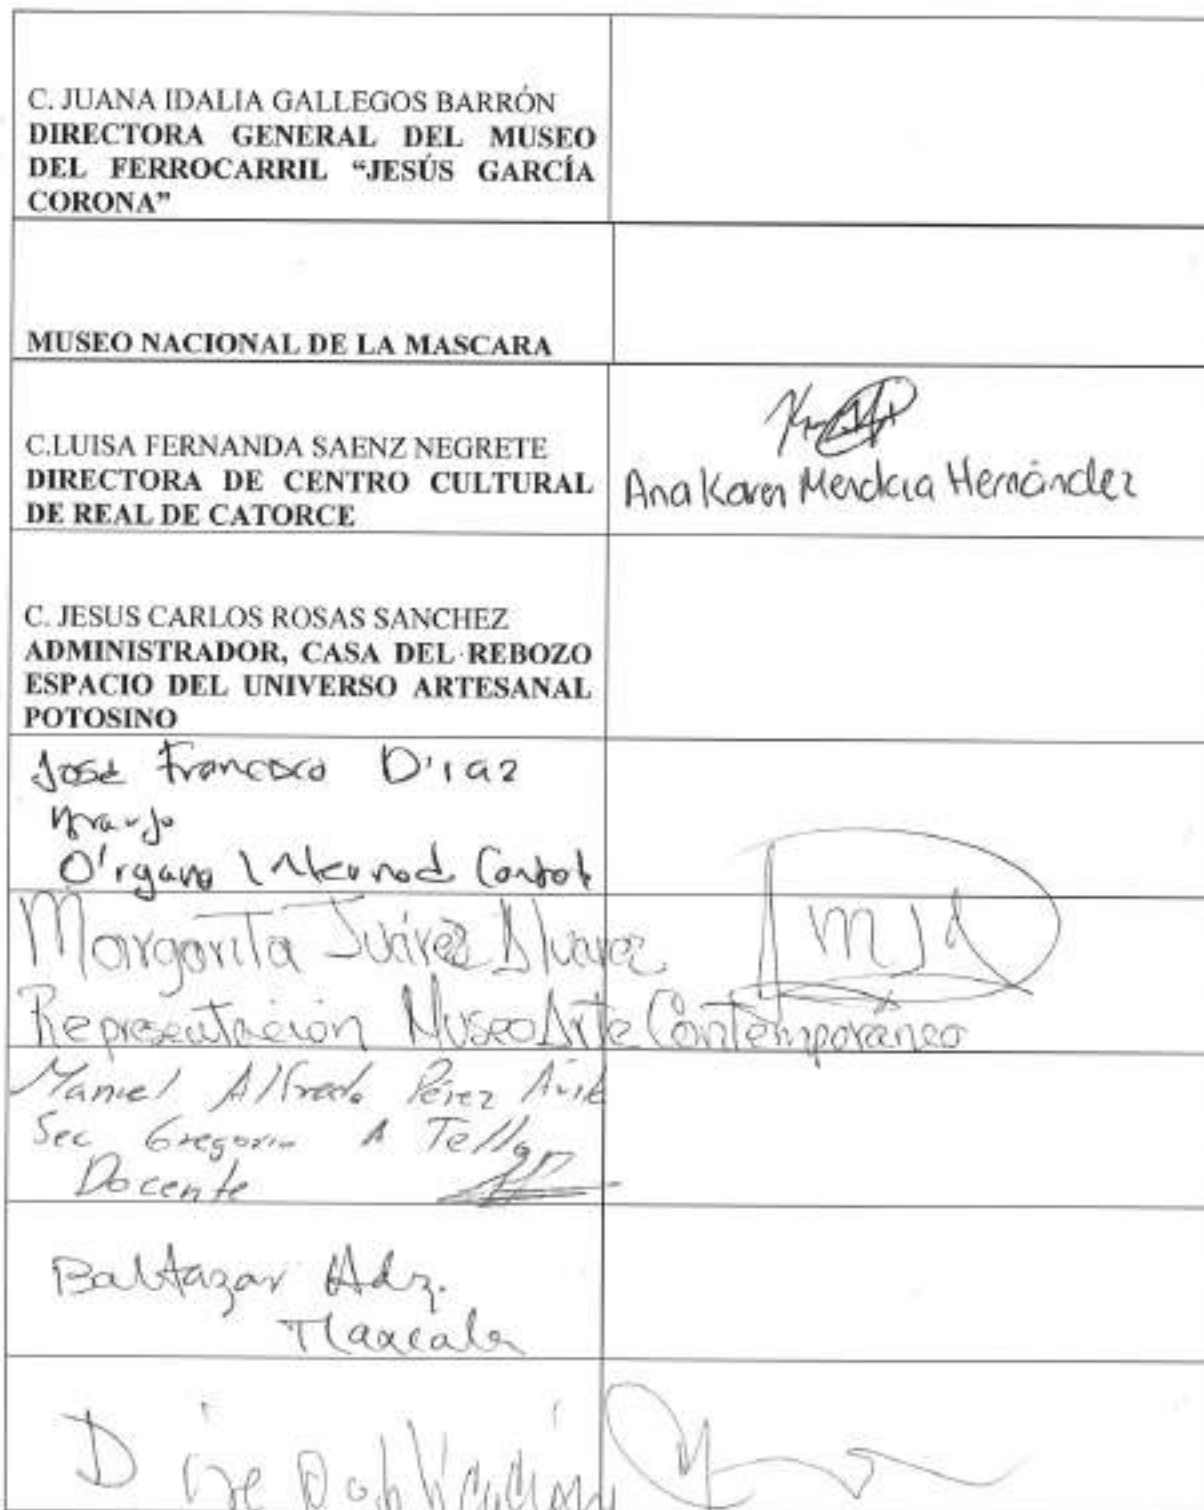 C. JUANA IDALIA GALLEGOS BARRÓN
DIRECTORA GENERAL DEL MUSEO
DEL FERROCARRIL “JESÚS GARCÍA
CORONA”
MUSEO NACIONAL DE LA MASCARA
C.LUISA FERNANDA SAENZ NEGRETE
DIRECTORA DE CENTRO CULTURAL
DE REAL DE CATORCE
Ana Karen Hernández
C. JESUS CARLOS ROSAS SANCHEZ
ADMINISTRADOR, CASA DEL REBOZO
ESPACIO DEL UNIVERSO ARTESANAL
POTOSINO
José Francisco Díaz
Araujo
Órgano Interno d Control
Margarita Juárez Alvarez
MJA
Representación Museo Arte Contemporaneo
Manuel Alfredo Pérez
Sec Gregorio A Tello
Docente
Baltazar Hdz.
Tlaxcala